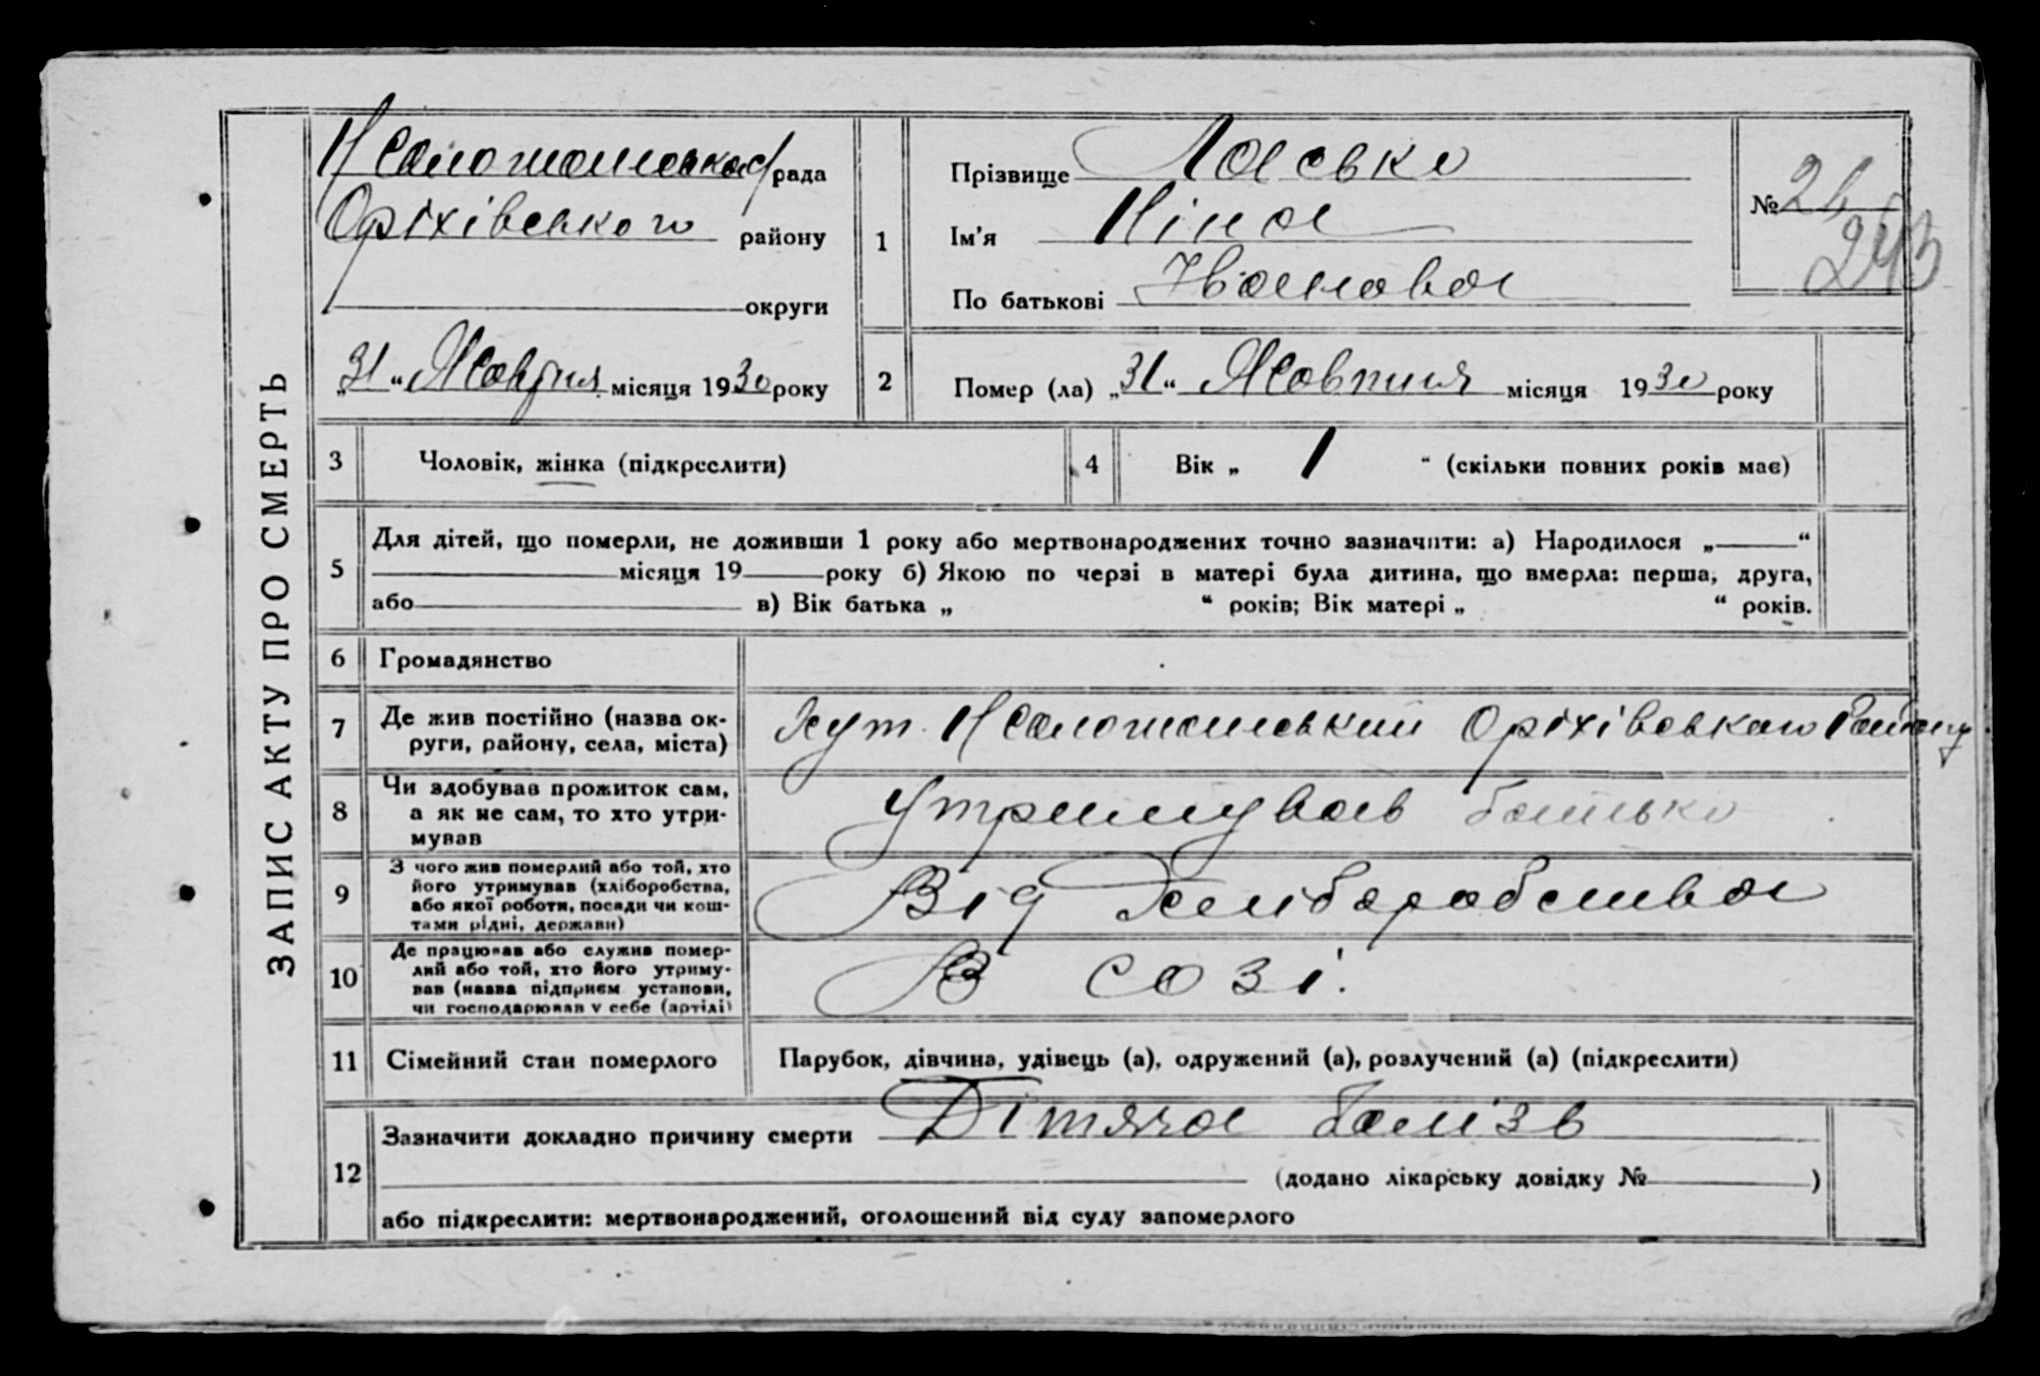 ЗАПИС АКТУ ПРО СМЕРТЬ
рада
Оріхівського району
округи
„31“ Жовтня місяця 1930 року
1
Прізвище Ласько
Ім'я Ніна
По батькові Івановна
№ 24
243
2 Помер (ла) „31“ Жовтня місяця 1930 року
3 Чоловік, жінка (підкреслити)
4 Вік „ 1 “ (скільки повних років має)
5 Для дітей, що померли, не доживши 1 року або мертвонароджених точно зазначити: а) Народилося „ “
місяця 19 року б) Якою по черзі в матері була дитина, що вмерла: перша, друга,
або в) Вік батька „ “ років; Вік матері „ “ років.
6 Громадянство
7 Де жив постійно (назва ок-
руги, району, села, міста)
Хут. Оріхівського Району
8 Чи здобував прожиток сам,
а як не сам, то хто утри-
мував
Утримував батько
9 З чого жив померлий або той, хто
його утримував (хліборобства,
або якої роботи, посади чи кош-
тами рідні, держави)
Від Хліборобства
10 Де працював або служив помер-
лий або той, хто його утриму-
вав (назва підприєм установи,
чи господарював у себе (артілі)
В созі.
11 Сімейний стан померлого
Парубок, дівчина, удівець (а), одружений (а), розлучений (а) (підкреслити)
12 Зазначити докладно причину смерти Дітяча болізь
(додано лікарську довідку № )
або підкреслити: мертвонароджений, оголошений від суду запомерлого